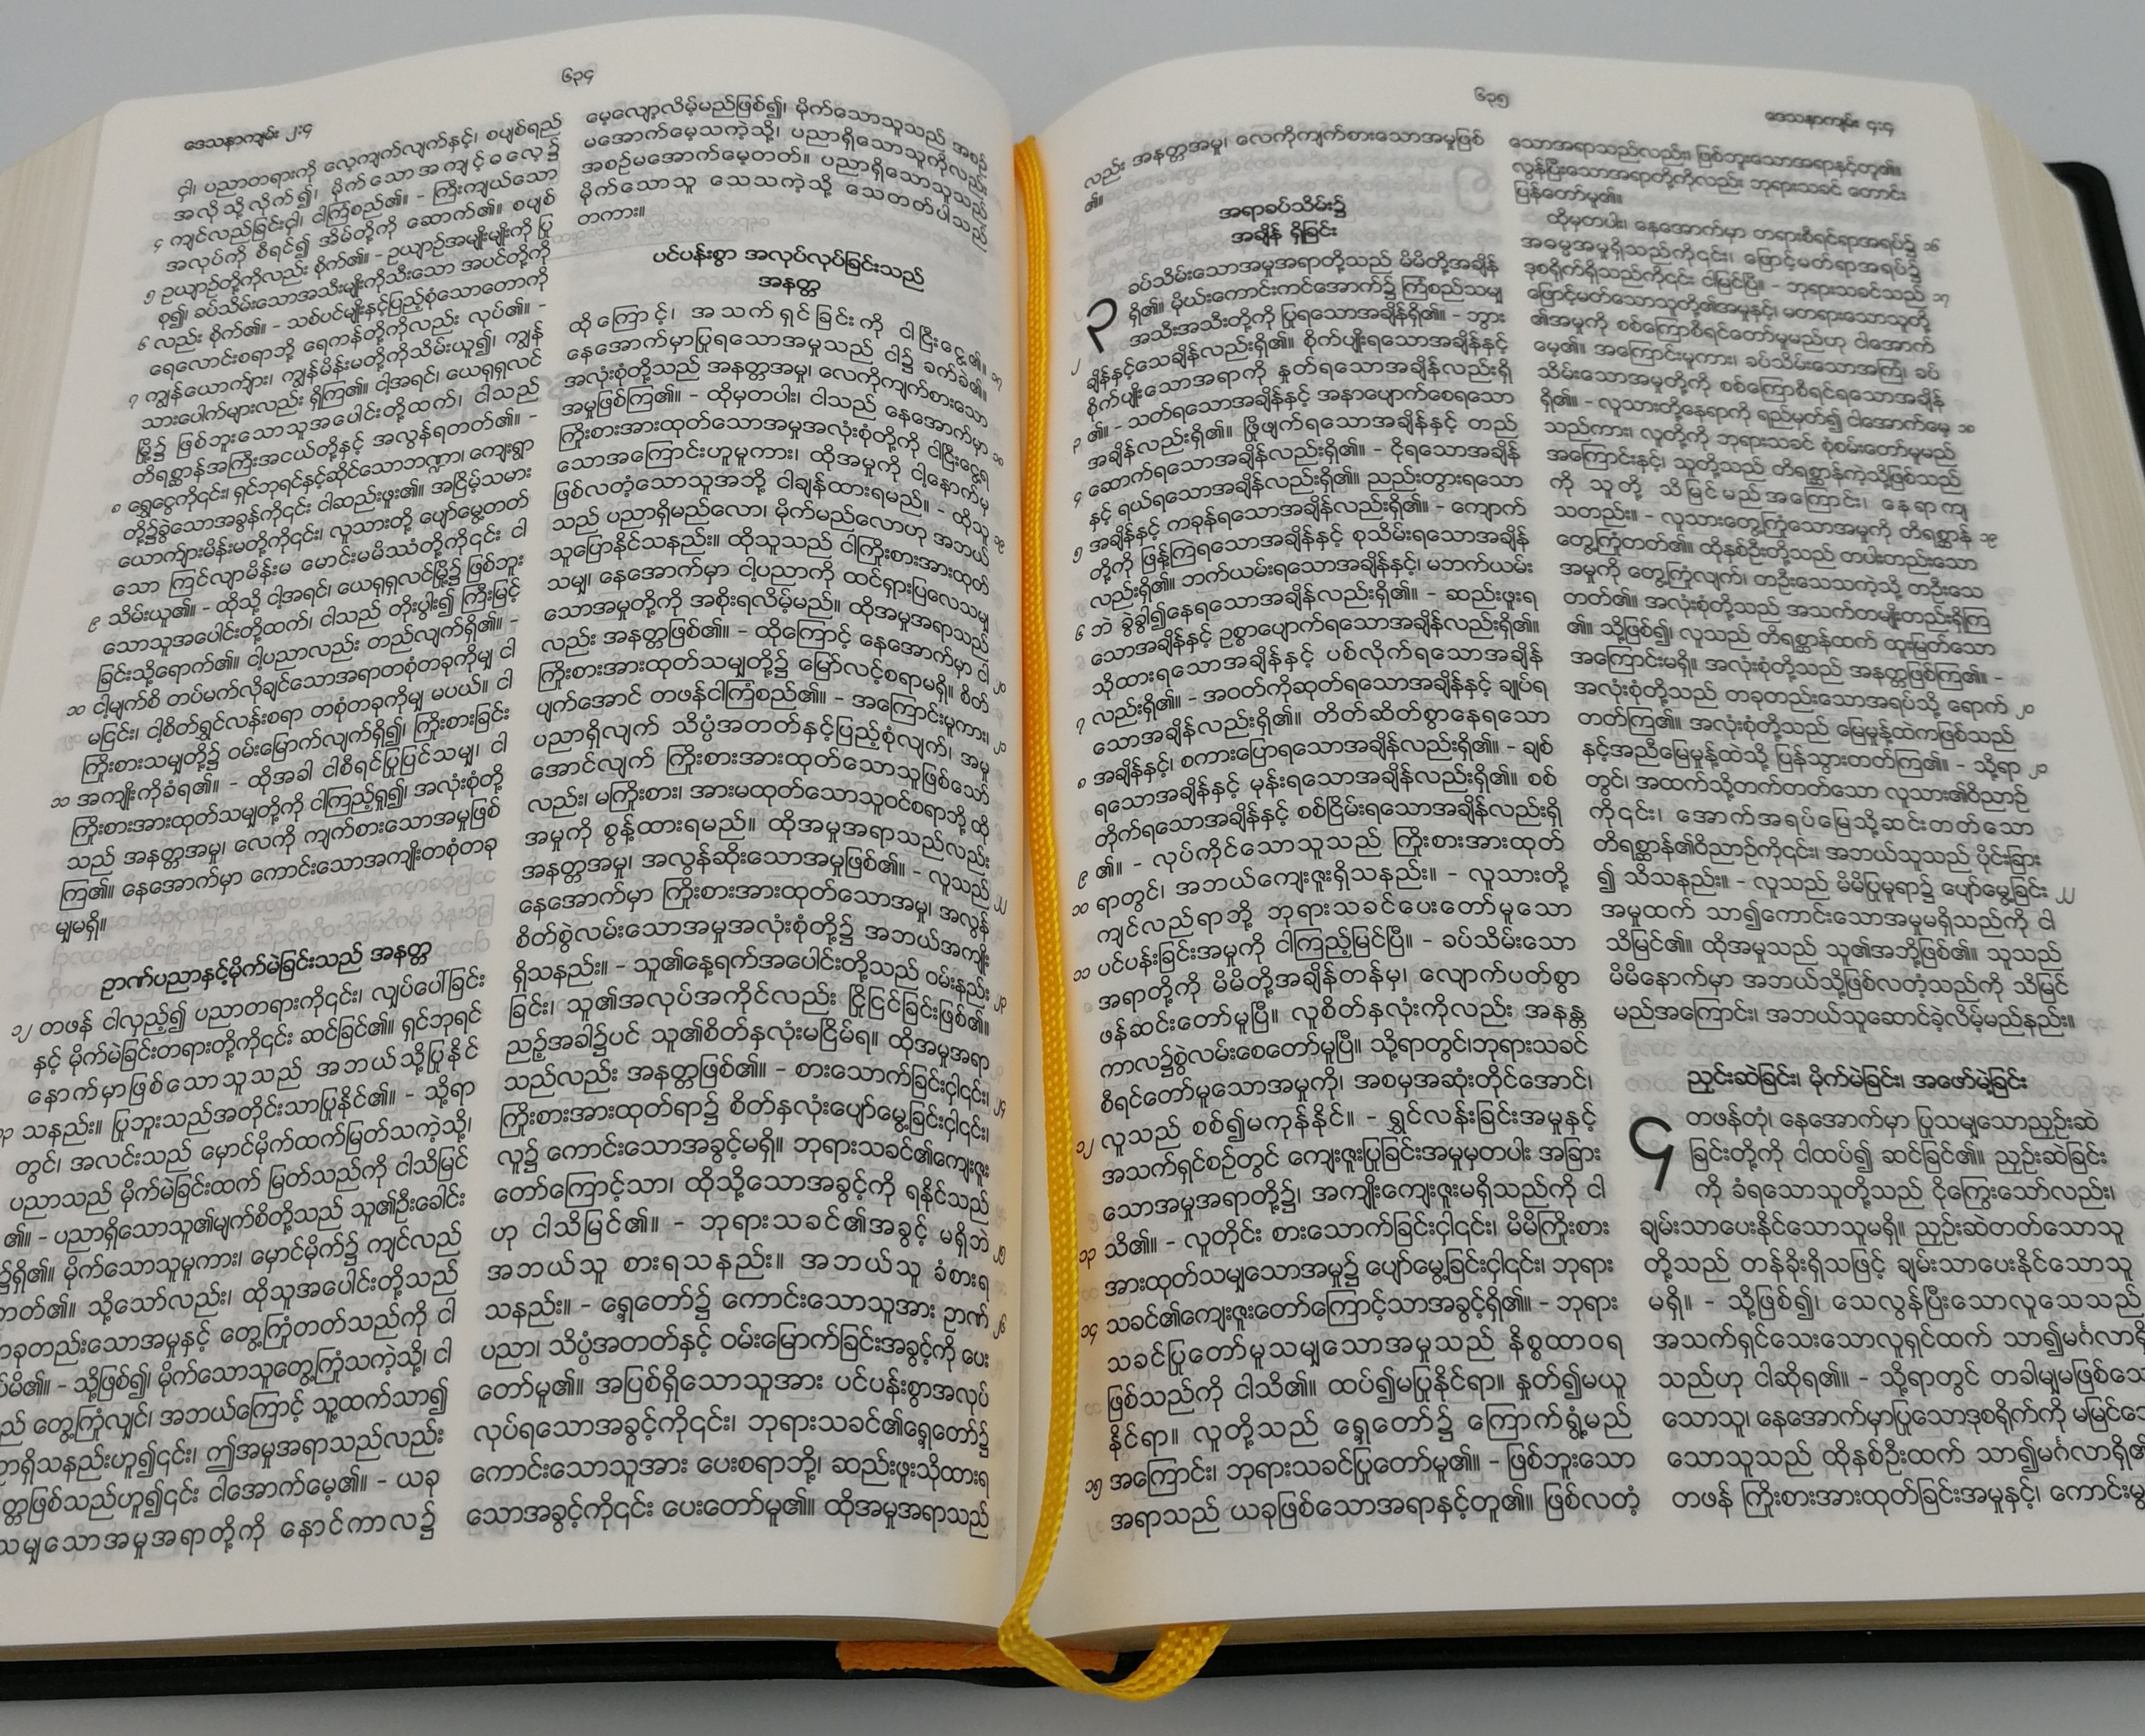 ၆၃၄
ဒေသနာကျမ်း ၂:၄
ငှါ၊ ပညာတရားကို လေ့ကျက်လျက်နှင့်၊ စပျစ်ရည်
အလိုသို့လိုက်၍၊ မိုက်သောအကျင့်ဓလေ့၌
၄ ကျင်လည်ခြင်းငှါ၊ ငါကြံစည်၏။ - ကြီးကျယ်သော
အလုပ်ကို စီရင်၍ အိမ်တို့ကို ဆောက်၏။ စပျစ်
၅ ဥယျာဉ်တို့ကိုလည်း စိုက်၏။ - ဥယျာဉ်အမျိုးမျိုးကို ပြု
စု၍၊ ခပ်သိမ်းသောအသီးမျိုးကိုသီးသော အပင်တို့ကို
၆ လည်း စိုက်၏။ - သစ်ပင်မျိုးနှင့်ပြည့်စုံသောတောကို
ရေလောင်းစရာဘို့ ရေကန်တို့ကိုလည်း လုပ်၏။ -
၇ ကျွန်ယောက်ျား၊ ကျွန်မိန်းမတို့ကိုသိမ်းယူ၍၊ ကျွန်
သားပေါက်များလည်း ရှိကြ၏။ ငါ့အရင်၊ ယေရုရှလင်
မြို့၌ ဖြစ်ဘူးသောသူအပေါင်းတို့ထက်၊ ငါသည်
တိရစ္ဆာန်အကြီးအငယ်တို့နှင့် အလွန်ရတတ်၏။ -
၈ ရွှေငွေကို၎င်း၊ ရှင်ဘုရင်နှင့်ဆိုင်သောဘဏ္ဍာ၊ ကျေးရွာ
တို့၌ခွဲသောအခွန်ကို၎င်း ငါဆည်းဖူး၏။ အငြိမ့်သမား
ယောက်ျားမိန်းမတို့ကို၎င်း၊ လူသားတို့ ပျော်မွေ့တတ်
သော ကြင်လျာမိန်းမ မောင်းမမိဿံတို့ကို၎င်း ငါ
၉ သိမ်းယူ၏။ - ထိုသို့ ငါ့အရင်၊ ယေရုရှလင်မြို့၌ ဖြစ်ဘူး
သောသူအပေါင်းတို့ထက်၊ ငါသည် တိုးပွါး၍ ကြီးမြင့်
ခြင်းသို့ရောက်၏။ ငါ့ပညာလည်း တည်လျက်ရှိ၏။ -
၁၀ ငါ့မျက်စိ တပ်မက်လိုချင်သောအရာတစုံတခုကိုမျှ ငါ
မငြင်း၊ ငါ့စိတ်ရွှင်လန်းစရာ တစုံတခုကိုမျှ မပယ်။ ငါ
ကြိုးစားသမျှတို့၌ ဝမ်းမြောက်လျက်ရှိ၍၊ ကြိုးစားခြင်း
၁၁ အကျိုးကိုခံရ၏။ - ထိုအခါ ငါစီရင်ပြုပြင်သမျှ၊ ငါ
ကြိုးစားအားထုတ်သမျှတို့ကို ငါကြည့်ရှု၍၊ အလုံးစုံတို့
သည် အနတ္တအမှု၊ လေကို ကျက်စားသောအမှုဖြစ်
ကြ၏။ နေအောက်မှာ ကောင်းသောအကျိုးတစုံတခု
မျှမရှိ။
ဉာဏ်ပညာနှင့်မိုက်မဲခြင်းသည် အနတ္တ
၁၂ တဖန် ငါလှည့်၍ ပညာတရားကို၎င်း၊ လျှပ်ပေါ်ခြင်း
နှင့် မိုက်မဲခြင်းတရားတို့ကို၎င်း ဆင်ခြင်၏။ ရှင်ဘုရင်
နောက်မှာဖြစ်သောသူသည် အဘယ်သို့ပြုနိုင်
၁၃ သနည်း။ ပြုဘူးသည်အတိုင်းသာပြုနိုင်၏။ - သို့ရာ
တွင်၊ အလင်းသည် မှောင်မိုက်ထက်မြတ်သကဲ့သို့၊
ပညာသည် မိုက်မဲခြင်းထက် မြတ်သည်ကို ငါသိမြင်
၏။ - ပညာရှိသောသူ၏မျက်စိတို့သည် သူ၏ဦးခေါင်း
၌ရှိ၏။ မိုက်သောသူမူကား၊ မှောင်မိုက်၌ ကျင်လည်
တတ်၏။ သို့သော်လည်း၊ ထိုသူအပေါင်းတို့သည်
တခုတည်းသောအမှုနှင့် တွေ့ကြုံတတ်သည်ကို ငါ
ရိပ်မိ၏။ - သို့ဖြစ်၍၊ မိုက်သောသူတွေ့ကြုံသကဲ့သို့၊ ငါ
သည် တွေ့ကြုံလျှင်၊ အဘယ်ကြောင့် သူ့ထက်သာ၍
ပညာရှိသနည်းဟူ၍၎င်း၊ ဤအမှုအရာသည်လည်း
အနတ္တဖြစ်သည်ဟူ၍၎င်း ငါအောက်မေ့၏။ - ယခု
သမျှသောအမှုအရာတို့ကို နောင်ကာလ၌
မေ့လျော့လိမ့်မည်ဖြစ်၍၊ မိုက်သောသူသည် အစဉ်
မအောက်မေ့သကဲ့သို့၊ ပညာရှိသောသူကိုလည်း
အစဉ်မအောက်မေ့တတ်။ ပညာရှိသောသူသည်
မိုက်သောသူ သေသကဲ့သို့ သေတတ်ပါသည်
တကား။
ပင်ပန်းစွာ အလုပ်လုပ်ခြင်းသည်
အနတ္တ
ထိုကြောင့်၊ အသက်ရှင်ခြင်းကို ငါငြီးငွေ့၏။ ၁၇
နေအောက်မှာပြုရသောအမှုသည် ငါ၌ ခက်ခဲ၏။
အလုံးစုံတို့သည် အနတ္တအမှု၊ လေကိုကျက်စားသော
အမှုဖြစ်ကြ၏။ - ထိုမှတပါး၊ ငါသည် နေအောက်မှာ ၁၈
ကြိုးစားအားထုတ်သောအမှုအလုံးစုံတို့ကို ငါငြီးငွေ့ရ
သောအကြောင်းဟူမူကား၊ ထိုအမှုကို ငါ့နောက်မှ
ဖြစ်လတံ့သောသူအဘို့ ငါချန်ထားရမည်။ - ထိုသူ ၁၉
သည် ပညာရှိမည်လော၊ မိုက်မည်လောဟု အဘယ်
သူပြောနိုင်သနည်း။ ထိုသူသည် ငါကြိုးစားအားထုတ်
သမျှ၊ နေအောက်မှာ ငါ့ပညာကို ထင်ရှားပြလေသမျှ
သောအမှုတို့ကို အစိုးရလိမ့်မည်။ ထိုအမှုအရာသည်
လည်း အနတ္တဖြစ်၏။ - ထိုကြောင့် နေအောက်မှာ ငါ ၂၀
ကြိုးစားအားထုတ်သမျှတို့၌ မြော်လင့်စရာမရှိ။ စိတ်
ပျက်အောင် တဖန်ငါကြံစည်၏။ - အကြောင်းမူကား၊ ၂၁
ပညာရှိလျက် သိပ္ပံအတတ်နှင့်ပြည့်စုံလျက်၊ အမှု
အောင်လျက် ကြိုးစားအားထုတ်သောသူဖြစ်သော်
လည်း၊ မကြိုးစား၊ အားမထုတ်သောသူဝင်စရာဘို့ ထို
အမှုကို စွန့်ထားရမည်။ ထိုအမှုအရာသည်လည်း
အနတ္တအမှု၊ အလွန်ဆိုးသောအမှုဖြစ်၏။ - လူသည် ၂၂
နေအောက်မှာ ကြိုးစားအားထုတ်သောအမှု၊ အလွန်
စိတ်စွဲလမ်းသောအမှုအလုံးစုံတို့၌ အဘယ်အကျိုး
ရှိသနည်း။ - သူ၏နေ့ရက်အပေါင်းတို့သည် ဝမ်းနည်း ၂၃
ခြင်း၊ သူ၏အလုပ်အကိုင်လည်း ငြိုငြင်ခြင်းဖြစ်၏။
ညဉ့်အခါ၌ပင် သူ၏စိတ်နှလုံးမငြိမ်ရ။ ထိုအမှုအရာ
သည်လည်း အနတ္တဖြစ်၏။ - စားသောက်ခြင်းငှါ၎င်း၊ ၂၄
ကြိုးစားအားထုတ်ရာ၌ စိတ်နှလုံးပျော်မွေ့ခြင်းငှါ၎င်း၊
လူ၌ ကောင်းသောအခွင့်မရှိ။ ဘုရားသခင်၏ကျေးဇူး
တော်ကြောင့်သာ၊ ထိုသို့သောအခွင့်ကို ရနိုင်သည်
ဟု ငါသိမြင်၏။ - ဘုရားသခင်၏အခွင့် မရှိဘဲ ၂၅
အဘယ်သူ စားရသနည်း။ အဘယ်သူ ခံစားရ
သနည်း။ - ရှေ့တော်၌ ကောင်းသောသူအား ဉာဏ် ၂၆
ပညာ၊ သိပ္ပံအတတ်နှင့် ဝမ်းမြောက်ခြင်းအခွင့်ကို ပေး
တော်မူ၏။ အပြစ်ရှိသောသူအား ပင်ပန်းစွာအလုပ်
လုပ်ရသောအခွင့်ကို၎င်း၊ ဘုရားသခင်၏ရှေ့တော်၌
ကောင်းသောသူအား ပေးစရာဘို့၊ ဆည်းဖူးသိုထားရ
သောအခွင့်ကို၎င်း ပေးတော်မူ၏။ ထိုအမှုအရာသည်
၆၃၅
ဒေသနာကျမ်း ၄:၄
လည်း အနတ္တအမှု၊ လေကိုကျက်စားသောအမှုဖြစ်
၏။
အရာခပ်သိမ်း၌
အချိန် ရှိခြင်း
၃ ခပ်သိမ်းသောအမှုအရာတို့သည် မိမိတို့အချိန်
ရှိ၏။ မိုဃ်းကောင်းကင်အောက်၌ ကြံစည်သမျှ
အသီးအသီးတို့ကို ပြုရသောအချိန်ရှိ၏။ - ဘွား
၂ ချိန်နှင့်သေချိန်လည်းရှိ၏။ စိုက်ပျိုးရသောအချိန်နှင့်
စိုက်ပျိုးသောအရာကို နှုတ်ရသောအချိန်လည်းရှိ
၃ ၏။ - သတ်ရသောအချိန်နှင့် အနာပျောက်စေရသော
အချိန်လည်းရှိ၏။ ဖြိုဖျက်ရသောအချိန်နှင့် တည်
၄ ဆောက်ရသောအချိန်လည်းရှိ၏။ - ငိုရသောအချိန်
နှင့် ရယ်ရသောအချိန်လည်းရှိ၏။ ညည်းတွားရသော
၅ အချိန်နှင့် ကခုန်ရသောအချိန်လည်းရှိ၏။ - ကျောက်
တို့ကို ဖြန့်ကြဲရသောအချိန်နှင့် စုသိမ်းရသောအချိန်
လည်းရှိ၏။ ဘက်ယမ်းရသောအချိန်နှင့်၊ မဘက်ယမ်း
၆ ဘဲ ခွဲခွါ၍နေရသောအချိန်လည်းရှိ၏။ - ဆည်းဖူးရ
သောအချိန်နှင့် ဥစ္စာပျောက်ရသောအချိန်လည်းရှိ၏။
သိုထားရသောအချိန်နှင့် ပစ်လိုက်ရသောအချိန်
၇ လည်းရှိ၏။ - အဝတ်ကိုဆုတ်ရသောအချိန်နှင့် ချုပ်ရ
သောအချိန်လည်းရှိ၏။ တိတ်ဆိတ်စွာနေရသော
၈ အချိန်နှင့်၊ စကားပြောရသောအချိန်လည်းရှိ၏။ - ချစ်
ရသောအချိန်နှင့် မုန်းရသောအချိန်လည်းရှိ၏။ စစ်
တိုက်ရသောအချိန်နှင့် စစ်ငြိမ်းရသောအချိန်လည်းရှိ
၉ ၏။ - လုပ်ကိုင်သောသူသည် ကြိုးစားအားထုတ်
၁၀ ရာတွင်၊ အဘယ်ကျေးဇူးရှိသနည်း။ - လူသားတို့
ကျင်လည်ရာဘို့ ဘုရားသခင်ပေးတော်မူသော
၁၁ ပင်ပန်းခြင်းအမှုကို ငါကြည့်မြင်ပြီ။ - ခပ်သိမ်းသော
အရာတို့ကို မိမိတို့အချိန်တန်မှ၊ လျောက်ပတ်စွာ
ဖန်ဆင်းတော်မူပြီ။ လူစိတ်နှလုံးကိုလည်း အနန္တ
ကာလ၌စွဲလမ်းစေတော်မူပြီ။ သို့ရာတွင်၊ဘုရားသခင်
စီရင်တော်မူသောအမှုကို၊ အစမှအဆုံးတိုင်အောင်၊
၁၂ လူသည် စစ်၍မကုန်နိုင်။ - ရွှင်လန်းခြင်းအမှုနှင့်
အသက်ရှင်စဉ်တွင် ကျေးဇူးပြုခြင်းအမှုမှတပါး အခြား
သောအမှုအရာတို့၌၊ အကျိုးကျေးဇူးမရှိသည်ကို ငါ
၁၃ သိ၏။ - လူတိုင်း စားသောက်ခြင်းငှါ၎င်း၊ မိမိကြိုးစား
အားထုတ်သမျှသောအမှု၌ ပျော်မွေ့ခြင်းငှါ၎င်း၊ ဘုရား
၁၄ သခင်၏ကျေးဇူးတော်ကြောင့်သာအခွင့်ရှိ၏။ - ဘုရား
သခင်ပြုတော်မူသမျှသောအမှုသည် နိစ္စထာဝရ
ဖြစ်သည်ကို ငါသိ၏။ ထပ်၍မပြုနိုင်ရာ။ နှုတ်၍မယူ
နိုင်ရာ။ လူတို့သည် ရှေ့တော်၌ ကြောက်ရွံ့မည်
၁၅ အကြောင်း၊ ဘုရားသခင်ပြုတော်မူ၏။ - ဖြစ်ဘူးသော
အရာသည် ယခုဖြစ်သောအရာနှင့်တူ၏။ ဖြစ်လတံ့
သောအရာသည်လည်း၊ ဖြစ်ဘူးသောအရာနှင့်တူ၏။
လွန်ပြီးသောအရာတို့ကိုလည်း ဘုရားသခင် တောင်း
ပြန်တော်မူ၏။
ထိုမှတပါး၊ နေအောက်မှာ တရားစီရင်ရာအရပ်၌ ၁၆
အဓမ္မအမှုရှိသည်ကို၎င်း၊ ဖြောင့်မတ်ရာအရပ်၌
ဒုစရိုက်ရှိသည်ကို၎င်း ငါမြင်ပြီ။ - ဘုရားသခင်သည် ၁၇
ဖြောင့်မတ်သောသူတို့၏အမှုနှင့်၊ မတရားသောသူတို့
၏အမှုကို စစ်ကြောစီရင်တော်မူမည်ဟု ငါအောက်
မေ့၏။ အကြောင်းမူကား၊ ခပ်သိမ်းသောအကြံ၊ ခပ်
သိမ်းသောအမှုတို့ကို စစ်ကြောစီရင်ရသောအချိန်
ရှိ၏။ - လူသားတို့နေရာကို ရည်မှတ်၍ ငါအောက်မေ့ ၁၈
သည်ကား၊ လူတို့ကို ဘုရားသခင် စုံစမ်းတော်မူမည်
အကြောင်းနှင့်၊ သူတို့သည် တိရစ္ဆာန်ကဲ့သို့ဖြစ်သည်
ကို သူတို့ သိမြင်မည်အကြောင်း၊ နေရာကျ
သတည်း။ - လူသားတွေ့ကြုံသောအမှုကို တိရစ္ဆာန် ၁၉
တွေ့ကြုံတတ်၏။ ထိုနှစ်ဦးတို့သည် တပါးတည်းသော
အမှုကို တွေ့ကြုံလျက်၊ တဦးသေသကဲ့သို့ တဦးသေ
တတ်၏။ အလုံးစုံတို့သည် အသက်တမျိုးတည်းရှိကြ
၏။ သို့ဖြစ်၍၊ လူသည် တိရစ္ဆာန်ထက် ထူးမြတ်သော
အကြောင်းမရှိ။ အလုံးစုံတို့သည် အနတ္တဖြစ်ကြ၏။ -
အလုံးစုံတို့သည် တခုတည်းသောအရပ်သို့ ရောက် ၂၀
တတ်ကြ၏။ အလုံးစုံတို့သည် မြေမှုန့်ထဲကဖြစ်သည်
နှင့်အညီမြေမှုန့်ထဲသို့ ပြန်သွားတတ်ကြ၏။ - သို့ရာ ၂၁
တွင်၊ အထက်သို့တက်တတ်သော လူသား၏ဝိညာဉ်
ကို၎င်း၊ အောက်အရပ်မြေသို့ဆင်းတတ်သော
တိရစ္ဆာန်၏ဝိညာဉ်ကို၎င်း၊ အဘယ်သူသည် ပိုင်းခြား
၍ သိသနည်း။ - လူသည် မိမိပြုမူရာ၌ ပျော်မွေ့ခြင်း ၂၂
အမှုထက် သာ၍ကောင်းသောအမှုမရှိသည်ကို ငါ
သိမြင်၏။ ထိုအမှုသည် သူ၏အဘို့ဖြစ်၏။ သူသည်
မိမိနောက်မှာ အဘယ်သို့ဖြစ်လတံ့သည်ကို သိမြင်
မည်အကြောင်း၊ အဘယ်သူဆောင်ခဲ့လိမ့်မည်နည်း။
ညှင်းဆဲခြင်း၊ မိုက်မဲခြင်း၊ အဖော်မဲ့ခြင်း
၄ တဖန်တုံ၊ နေအောက်မှာ ပြုသမျှသောညှဉ်းဆဲ
ခြင်းတို့ကို ငါထပ်၍ ဆင်ခြင်၏။ ညှဉ်းဆဲခြင်း
ကို ခံရသောသူတို့သည် ငိုကြွေးသော်လည်း၊
ချမ်းသာပေးနိုင်သောသူမရှိ။ ညှဉ်းဆဲတတ်သောသူ
တို့သည် တန်ခိုးရှိသဖြင့် ချမ်းသာပေးနိုင်သောသူ
မရှိ။ - သို့ဖြစ်၍၊ သေလွန်ပြီးသောလူသေသည်
အသက်ရှင်သေးသောလူရှင်ထက် သာ၍မင်္ဂလာရှိ
သည်ဟု ငါဆိုရ၏။ - သို့ရာတွင် တခါမျှမဖြစ်သေး
သောသူ၊ နေအောက်မှာပြုသောဒုစရိုက်ကို မမြင်သေး
သောသူသည် ထိုနှစ်ဦးထက် သာ၍မင်္ဂလာရှိ၏
တဖန် ကြိုးစားအားထုတ်ခြင်းအမှုနှင့်၊ ကောင်းမွ